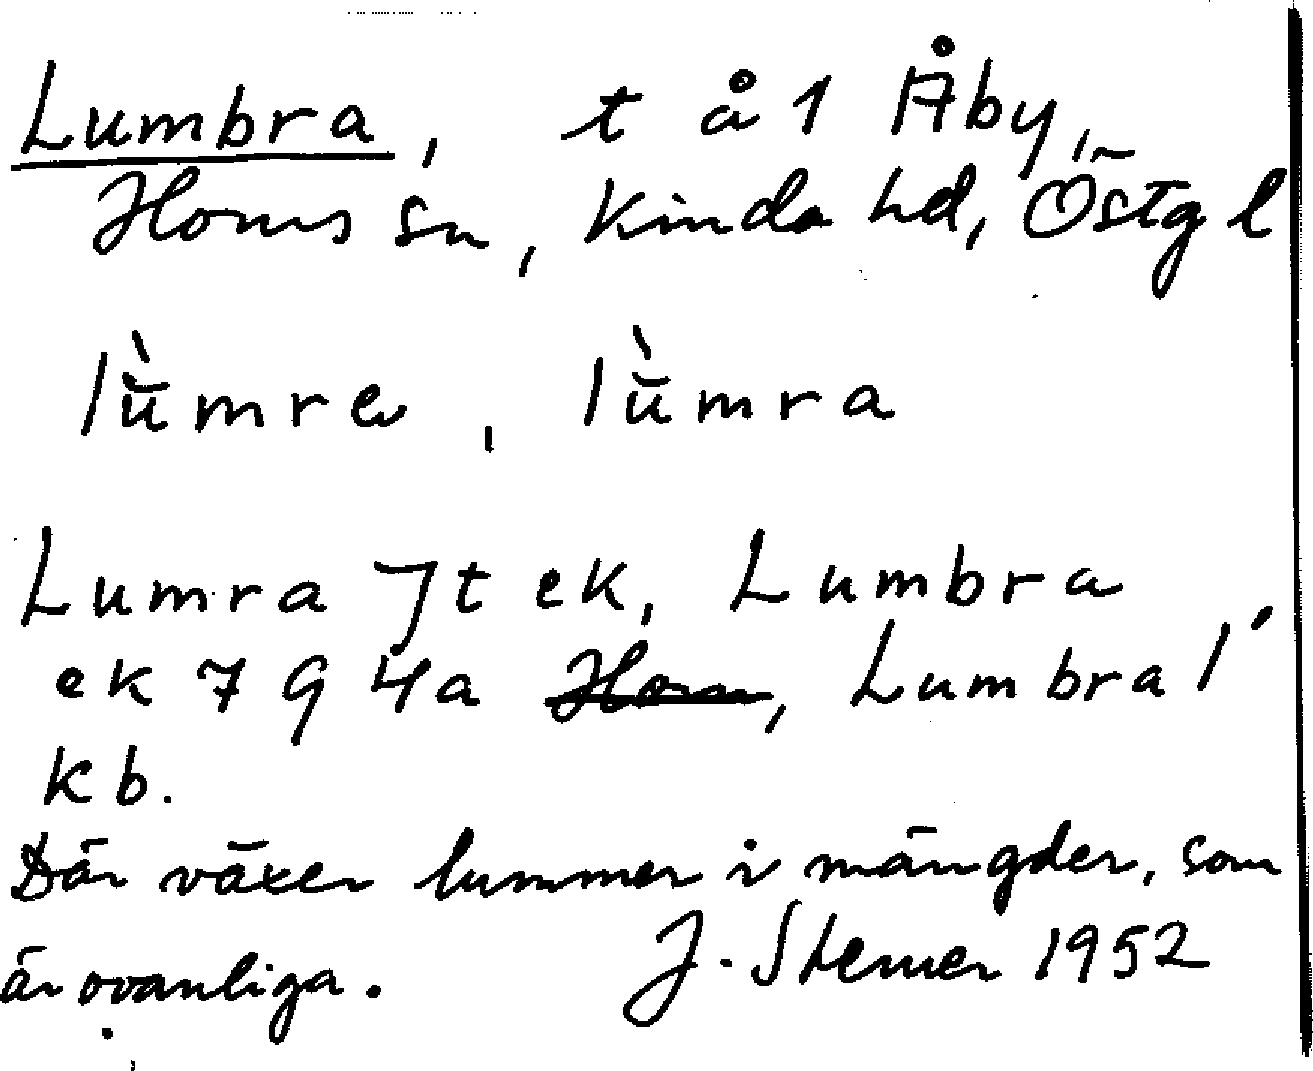 Lumbra, t å 1 Åby,
Horns sn, Kinda hd, Östg l
lŭ̀mre, lŭ̀mra
Lumra Jt ek, Lumbra
ek 7 9 4a Horn, Lumbra l
kb.
Där växer lummer i mängder, som
är ovanliga. J. Sterner 1952